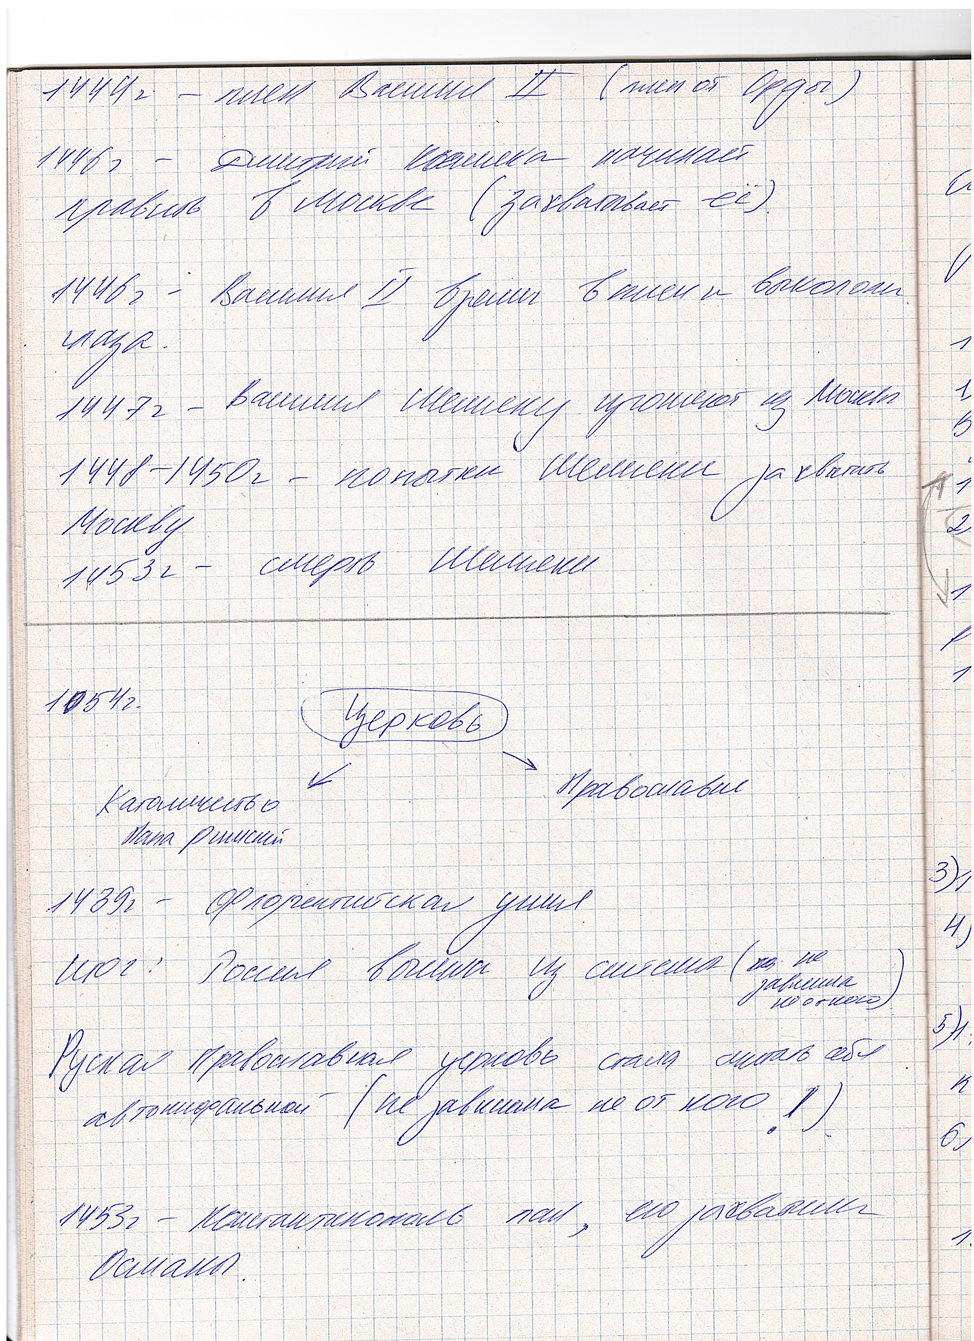 1444г - плен Василия II (плен от Орды)
1446г - Дмитрий Шемяка начинает
править в Москве (захватывает её)
1446г - Василия II взяли в плен и выкололи
глаза.
1447г - Василия Шемяку изгоняют из Москвы
1448-1450г - попытки Шемяки захватить
Москву
1453г - смерть Шемяки
1054г.
Церковь
Католичество
Православие
Папа Римский
1439г - Флорентийская уния
Итог: Россия вышла из системы (не
зависила
не от кого)
Руская Православная церковь стала считать себя
автокифальной (не зависима не от кого!)
1453г - Константинополь пал, его захватили
Османы.